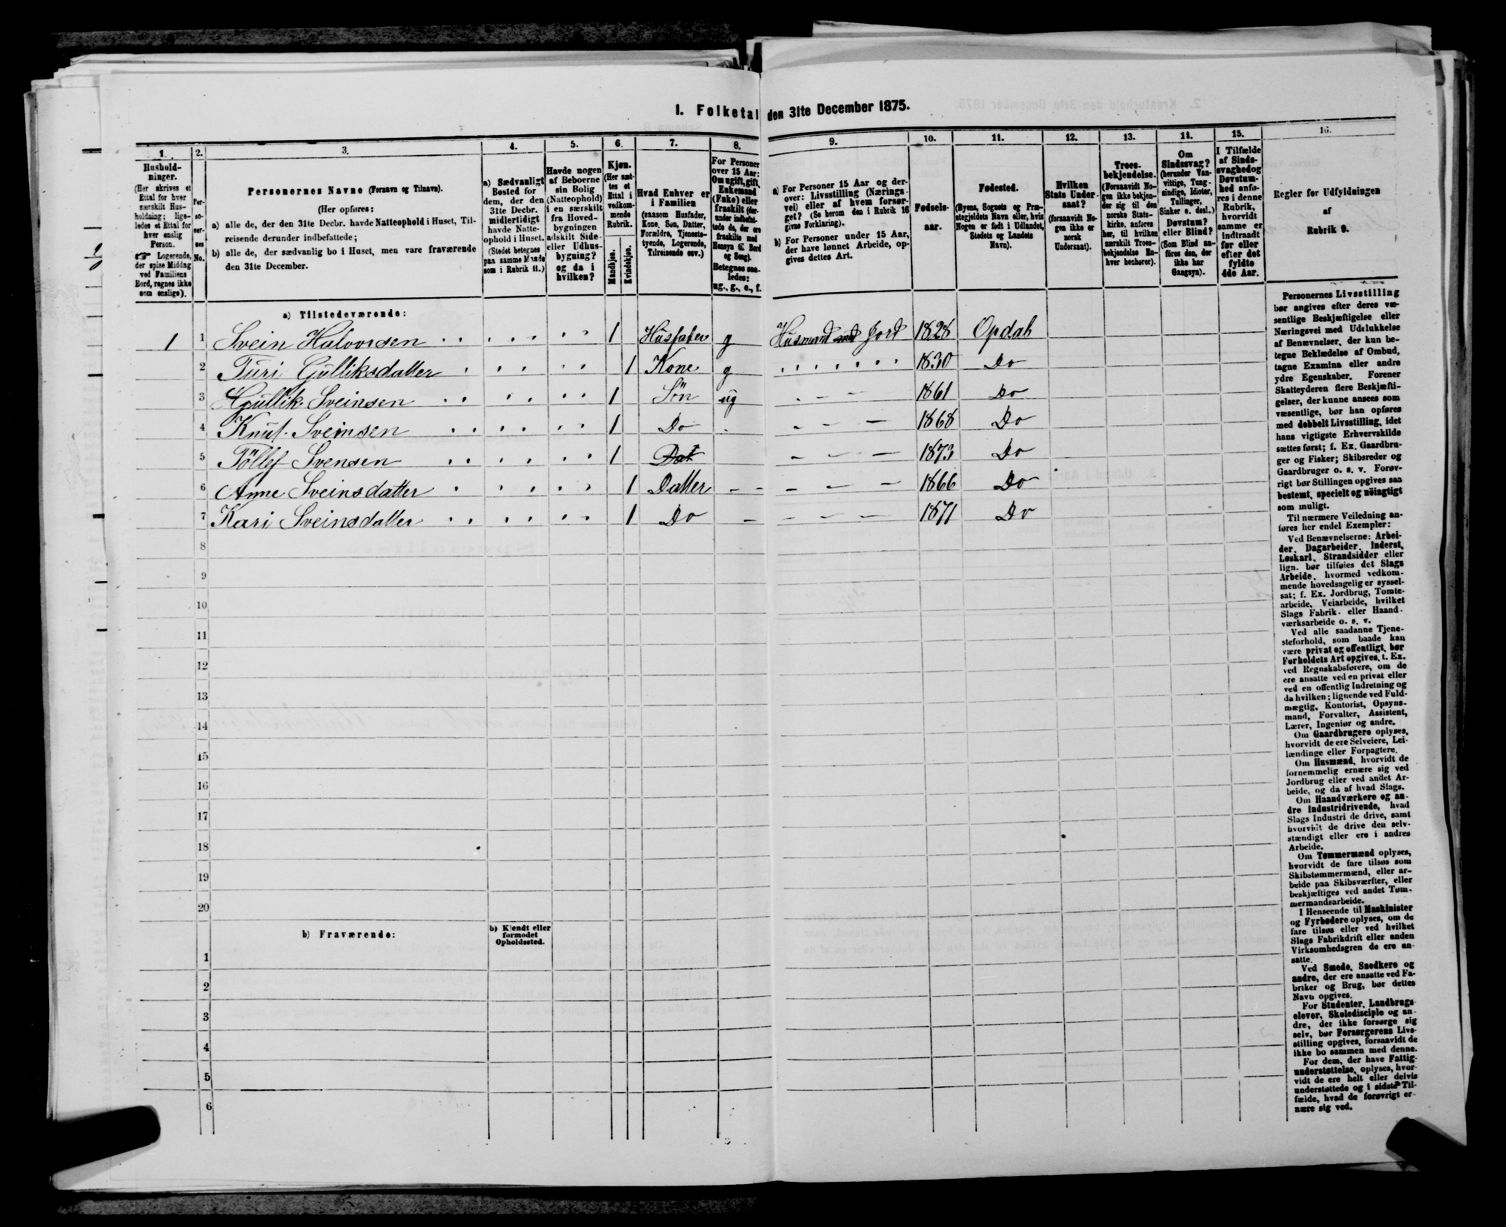 I. Folketal den 31te December 1875.
1. 2. 3. 4. 5. 6. 7. 8. 9. 10. 11. 12. 13. 14. 15. 16.
Hushold-
ninger.
(Her skrives et
Ettal for hver
særskilt Hus-
holdning; lige-
ledes et Ettal for
hver enslig
Person.
☞ Logerende,
der spise Middag
ved Familiens
Bord, regnes ikke
som enslige).
Per-
so-
ner-
nes
No.
Personernes Navne (Fornavn og Tilnavn).
(Her opføres:
a) alle de, der den 31te Decbr. havde Natteophold i Huset, Til-
reisende derunder indbefattede;
b) alle de, der sædvanlig bo i Huset, men vare fraværende
den 31te December.
a) Sædvanligt
Bosted for
dem, der den
31te Decbr.
midlertidigt
havde Natte-
ophold i Huset.
(Stedet betegnes
paa samme Maade
som i Rubrik 11.)
Havde nogen
af Beboerne
sin Bolig
(Natteophold)
i en særskilt
fra Hoved-
bygningen
adskilt Side-
eller Udhus-
bygning?
og da i
hvilken?
Kjøn.
(Her sæt-
tes et
Ettal i
vedkom-
mende
Rubrik.
Mandkjøn.
Kvindekjøn.
Hvad Enhver er
i Familien
(saasom Husfader,
Kone, Søn, Datter,
Forældre, Tjeneste-
tyende, Logerende,
Tilreisende osv.)
For Personer
over 15 Aar:
Om ugift, gift,
Enkemand
(Enke) eller
fraskilt (der-
under indbefat-
tede de, der ere
fraskilte med
Hensyn til Bord
og Seng).
Betegnes saa-
ledes:
ug., g., e., f.
a) For Personer 15 Aar og der-
over: Livsstilling (Nærings-
vei) eller af hvem forsør-
get? (Se herom den i Rubrik 16
givne Forklaring).
b) For Personer under 15 Aar,
der have lønnet Arbeide, op-
gives dettes Art.
Fødsels-
aar.
Fødested.
(Byens, Sognets og Præ-
stegjeldets Navn eller, hvis
Nogen er født i Udlandet,
Stedets og Landets
Navn).
Hvilken
Stats Under-
saat?
(forsaavidt No-
gen ikke er
norsk
Undersaat).
Troes-
bekjendelse.
(Forsaavidt No-
gen ikke bekjen-
der sig til den
norske Stats-
kirke, anføres
her, til hvilken
særskilt Troes-
bekjendelse En-
hver henhører).
Om
Sindssvag?
(herunder Van-
vittige, Tung-
sindige, Idioter,
Tullinger,
Sinker o. desl.)
Døvstum?
eller Blind?
(Som Blind an-
føres den, der
ikke har
Gangsyn).
I Tilfælde
af Sinds-
svaghed og
Døvstum-
hed anfø-
res i denne
Rubrik,
hvorvidt
samme er
indtraadt
før eller
efter det
fyldte
4de Aar.
Regler for Udfyldningen
af
Rubrik 9.
a) Tilstedeværende:
1 1 Svein Halvorsen 1 Husfader g Husmand med Jord 1828 Opdal
2 Turi Gulliksdatter 1 Kone g 1830 Do
3 Gullik Sveinsen 1 Søn ug 1861 Do
4 Knut Sveinsen 1 Do 1868 Do
5 Tollef Svensen 1 1873 Do
6 Anne Sveinsdatter 1 Datter 1866 Do
7 Kari Sveinsdatter 1 Do 1871 Do
8
9
10
11
12
13
14
15
16
17
18
19
20
b) Fraværende:
b) Kjendt eller
formodet
Opholdssted.
1
2
3
4
5
6
Personernes Livsstilling
bør angives efter deres væ-
sentlige Beskjæftigelse eller
Næringsvei med Udelukkelse
af Benævnelser, der kun be-
tegne Beklædelse af Ombud,
tagne Examina eller andre
ydre Egenskaber. Forener
Skatteyderen flere Beskjæfti-
gelser, der kunne ansees som
væsentlige, bør han opføres
med dobbelt Livsstilling, idet
hans vigtigste Erhvervskilde
sættes først; f. Ex. Gaardbru-
ger og Fisker; Skibsreder og
Gaardbruger o. s. v. Forøv-
rigt bør Stillingen opgives saa
bestemt, specielt og nöiagtigt
som muligt.
Til nærmere Veiledning an-
føres her endel Exempler:
Ved Benævnelserne: Arbei-
der, Dagarbeider, Inderst,
Løskarl, Strandsidder eller
lign. bør tilføies det Slags
Arbeide, hvormed vedkom-
mende hovedsagelig er syssel-
sat; f. Ex. Jordbrug, Tomte-
arbeide, Veiarbeide, hvilket
Slags Fabrik- eller Haand-
værksarbeide o. s. v.
Ved alle saadanne Tjene-
steforhold, som baade kan
være privat og offentligt, bør
Forholdets Art opgives, f. Ex.
ved Regnskabsførere, om de
ere ansatte ved en privat eller
ved en offentlig Indretning og
da hvilken; lignende ved Fuld-
mægtig, Kontorist, Opsyns-
mand, Forvalter, Assistent,
Lærer, Ingeniør og andre.
Om Gaardbrugere oplyses,
hvorvidt de ere Selveiere, Lei-
lændinge eller Forpagtere.
Om Husmænd, hvorvidt de
fornemmelig ernære sig ved
Jordbrug eller ved andet Ar-
beide, og da af hvad Slags.
Om Haandværkere og an-
dre Industridrivende, hvad
Slags Industri de drive, samt
hvorvidt de drive den selv-
stændigt eller ere i andres
Arbeide.
Om Tømmermænd oplyses,
hvorvidt de fare tilsøs som
Skibstømmermænd, eller ar-
beide paa Skibsværfter, eller
beskjæftiges ved andet Tøm-
mermandsarbeide.
I Henseende til Maskinister
og Fyrbødere oplyses, om de
fare tilsøs eller ved hvilket
Slags Fabrikdrift eller anden
Virksomhedsgren de ere an-
satte.
Ved Smede, Snedkere og
andre, der ere ansatte ved Fa-
briker og Brug, bør dettes
Navn opgives.
For Studenter, Landbrugs-
elever, Skoledisciple og an-
dre, der ikke forsørge sig
selv, bør Forsørgerens Livs-
stilling opgives, forsaavidt de
ikke bo sammen med denne.
For dem, der have Fattig-
understøttelse, oplyses, hvor-
vidt de ere helt eller delvis
understøttede og i sidste Til-
fælde, hvad de forøvrigt er-
nære sig ved.